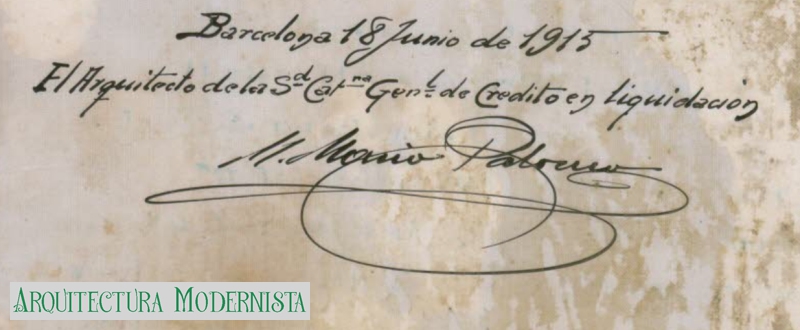 Barcelona 18 Junio de 1915
El Arquitecto de la Sd Catna Genl de Credito en liquidación
M. Mario
ARQUITECTURA MODERNISTA